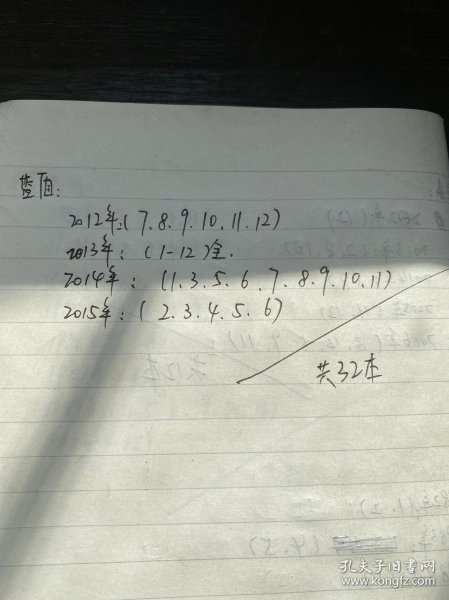 2012年:(7.8.9.10.11.12)
2013年:(1-12)全.
2014年:(1.3.5.6.7.8.9.10.11)
2015年:(2.3.4.5.6)
共32本
孔夫子旧书网
www.kongfz.com